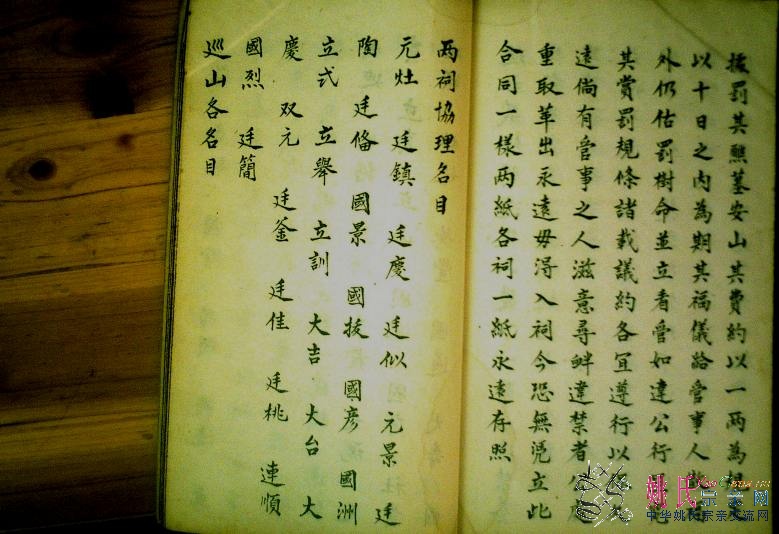 撥罰其醮墓安山其費約以一両為
以十日之内為期其福儀給管事人
外仍估罰樹命並立看管如違公行
其賞罰規條諸載議約各宜遵行以
遠倘有管事之人滋意尋衅違禁者公處
重取革出永遠毋淂入祠今恐無凭立此
合同一樣両紙各祠一紙永遠存照
両祠協理名目
元灶 廷鎮 廷慶 廷似 元景 廷
陶 廷俻 國景 國拔 國彥 國洲
立弍 立舉 立訓 大吉 大台 大
慶 双元 廷釜 廷佳 廷桃 連順
國烈 廷簡
廵山各名目
姚氏宗亲网
中华姚氏宗亲交流网